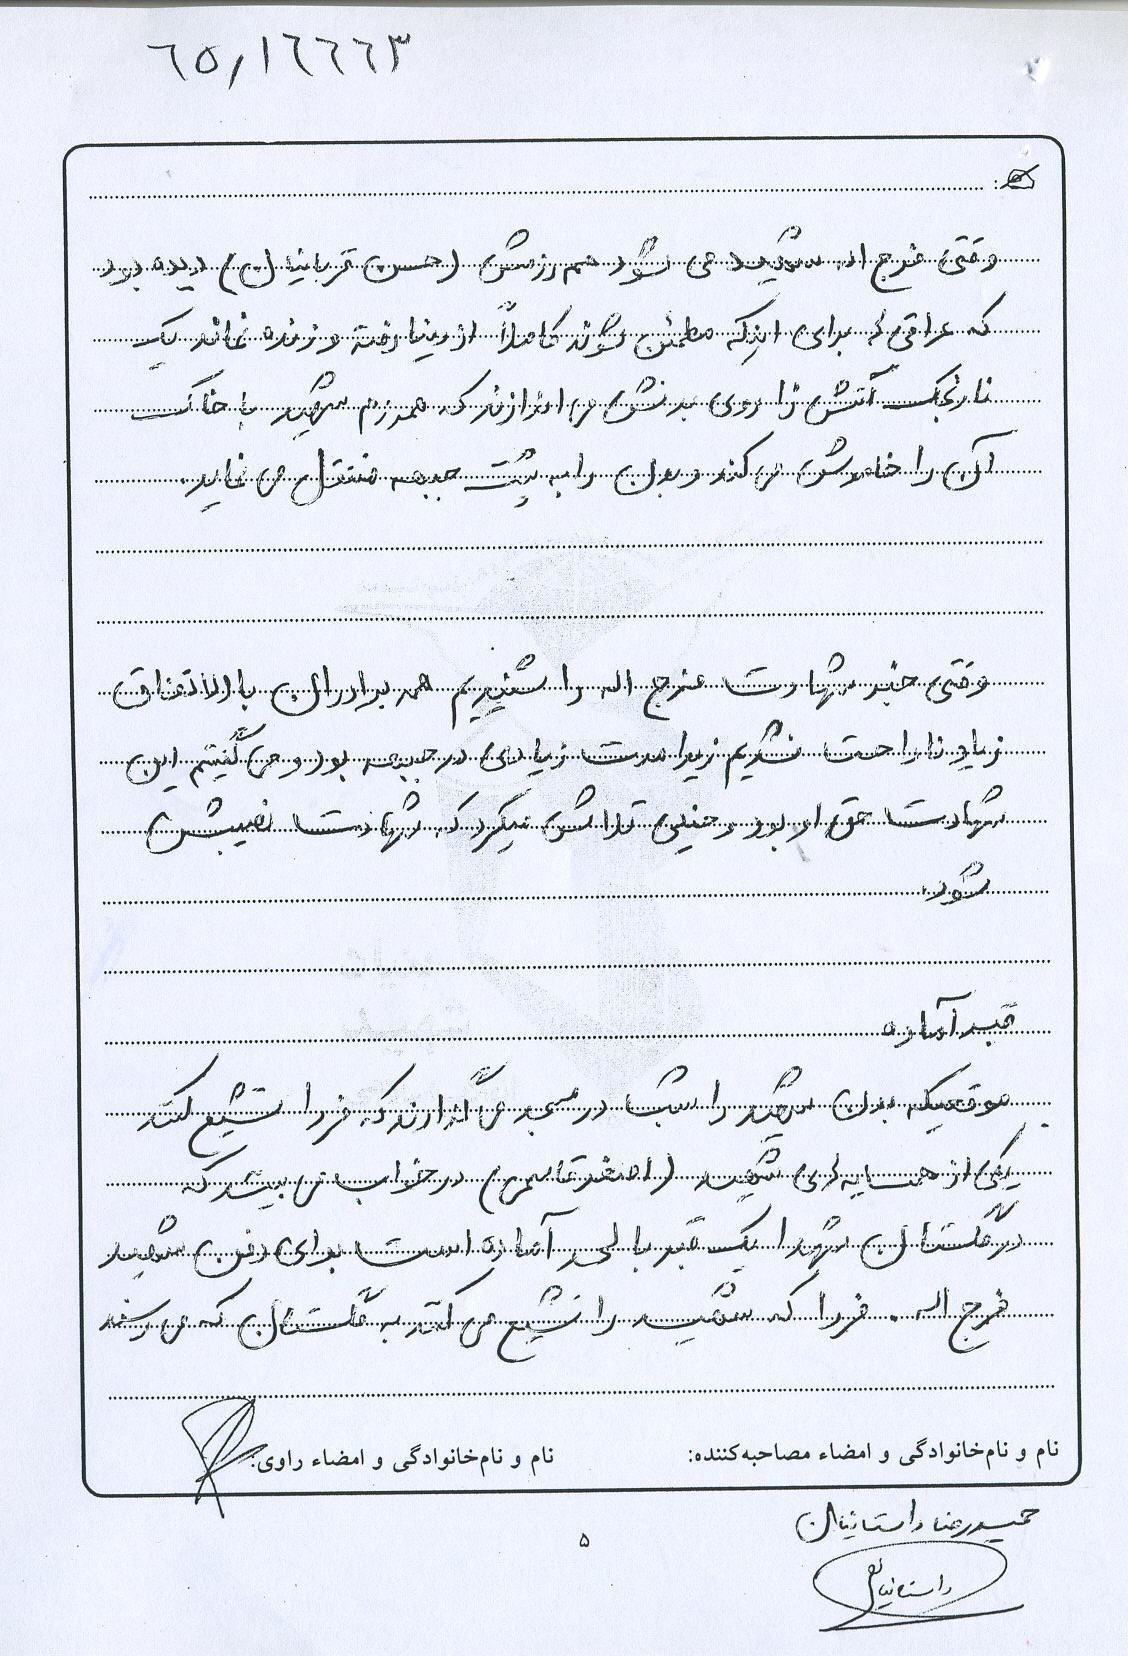 ٦٥,١٦٦٦٣
وقتی فرج اله شهید می شود هم رزمش (حسن قربانیان) دیده بود
که عراقی ها برای اینکه مطمئن شوند کاملاً از دنیا رفته و زنده نماند یک
نارنجک آتش زا روی بدنش می اندازند که همرزم شهید با خاک
آن را خاموش می کند و بدن را به پشت جبهه منتقل می نماید.
وقتی خبر شهادت فرج اله را شنیدیم همه برادران بالاتفاق
زیاد ناراحت نشدیم زیرا مدت زیادی در جبهه بود و می گفتیم این
شهادت حق او بود و خیلی تلاش میکرد که شهادت نصیبش
شود.
قبر آماده
موقعیکه بدن شهید را شب در مسجد می گذارند که فردا تشیع کنند
یکی از همسایه های شهید (اصغر قاسمی) در خواب می بیند که
در گلستان شهدا یک قبر با لحد آماده است برای دفن شهید
فرج اله. فردا که شهید را تشیع می کنند به گلستان که می رسند
نام و نام‌خانوادگی و امضاء مصاحبه‌کننده: نام و نام‌خانوادگی و امضاء راوی:
حمیدرضا داستانیان
۵
داستانیان